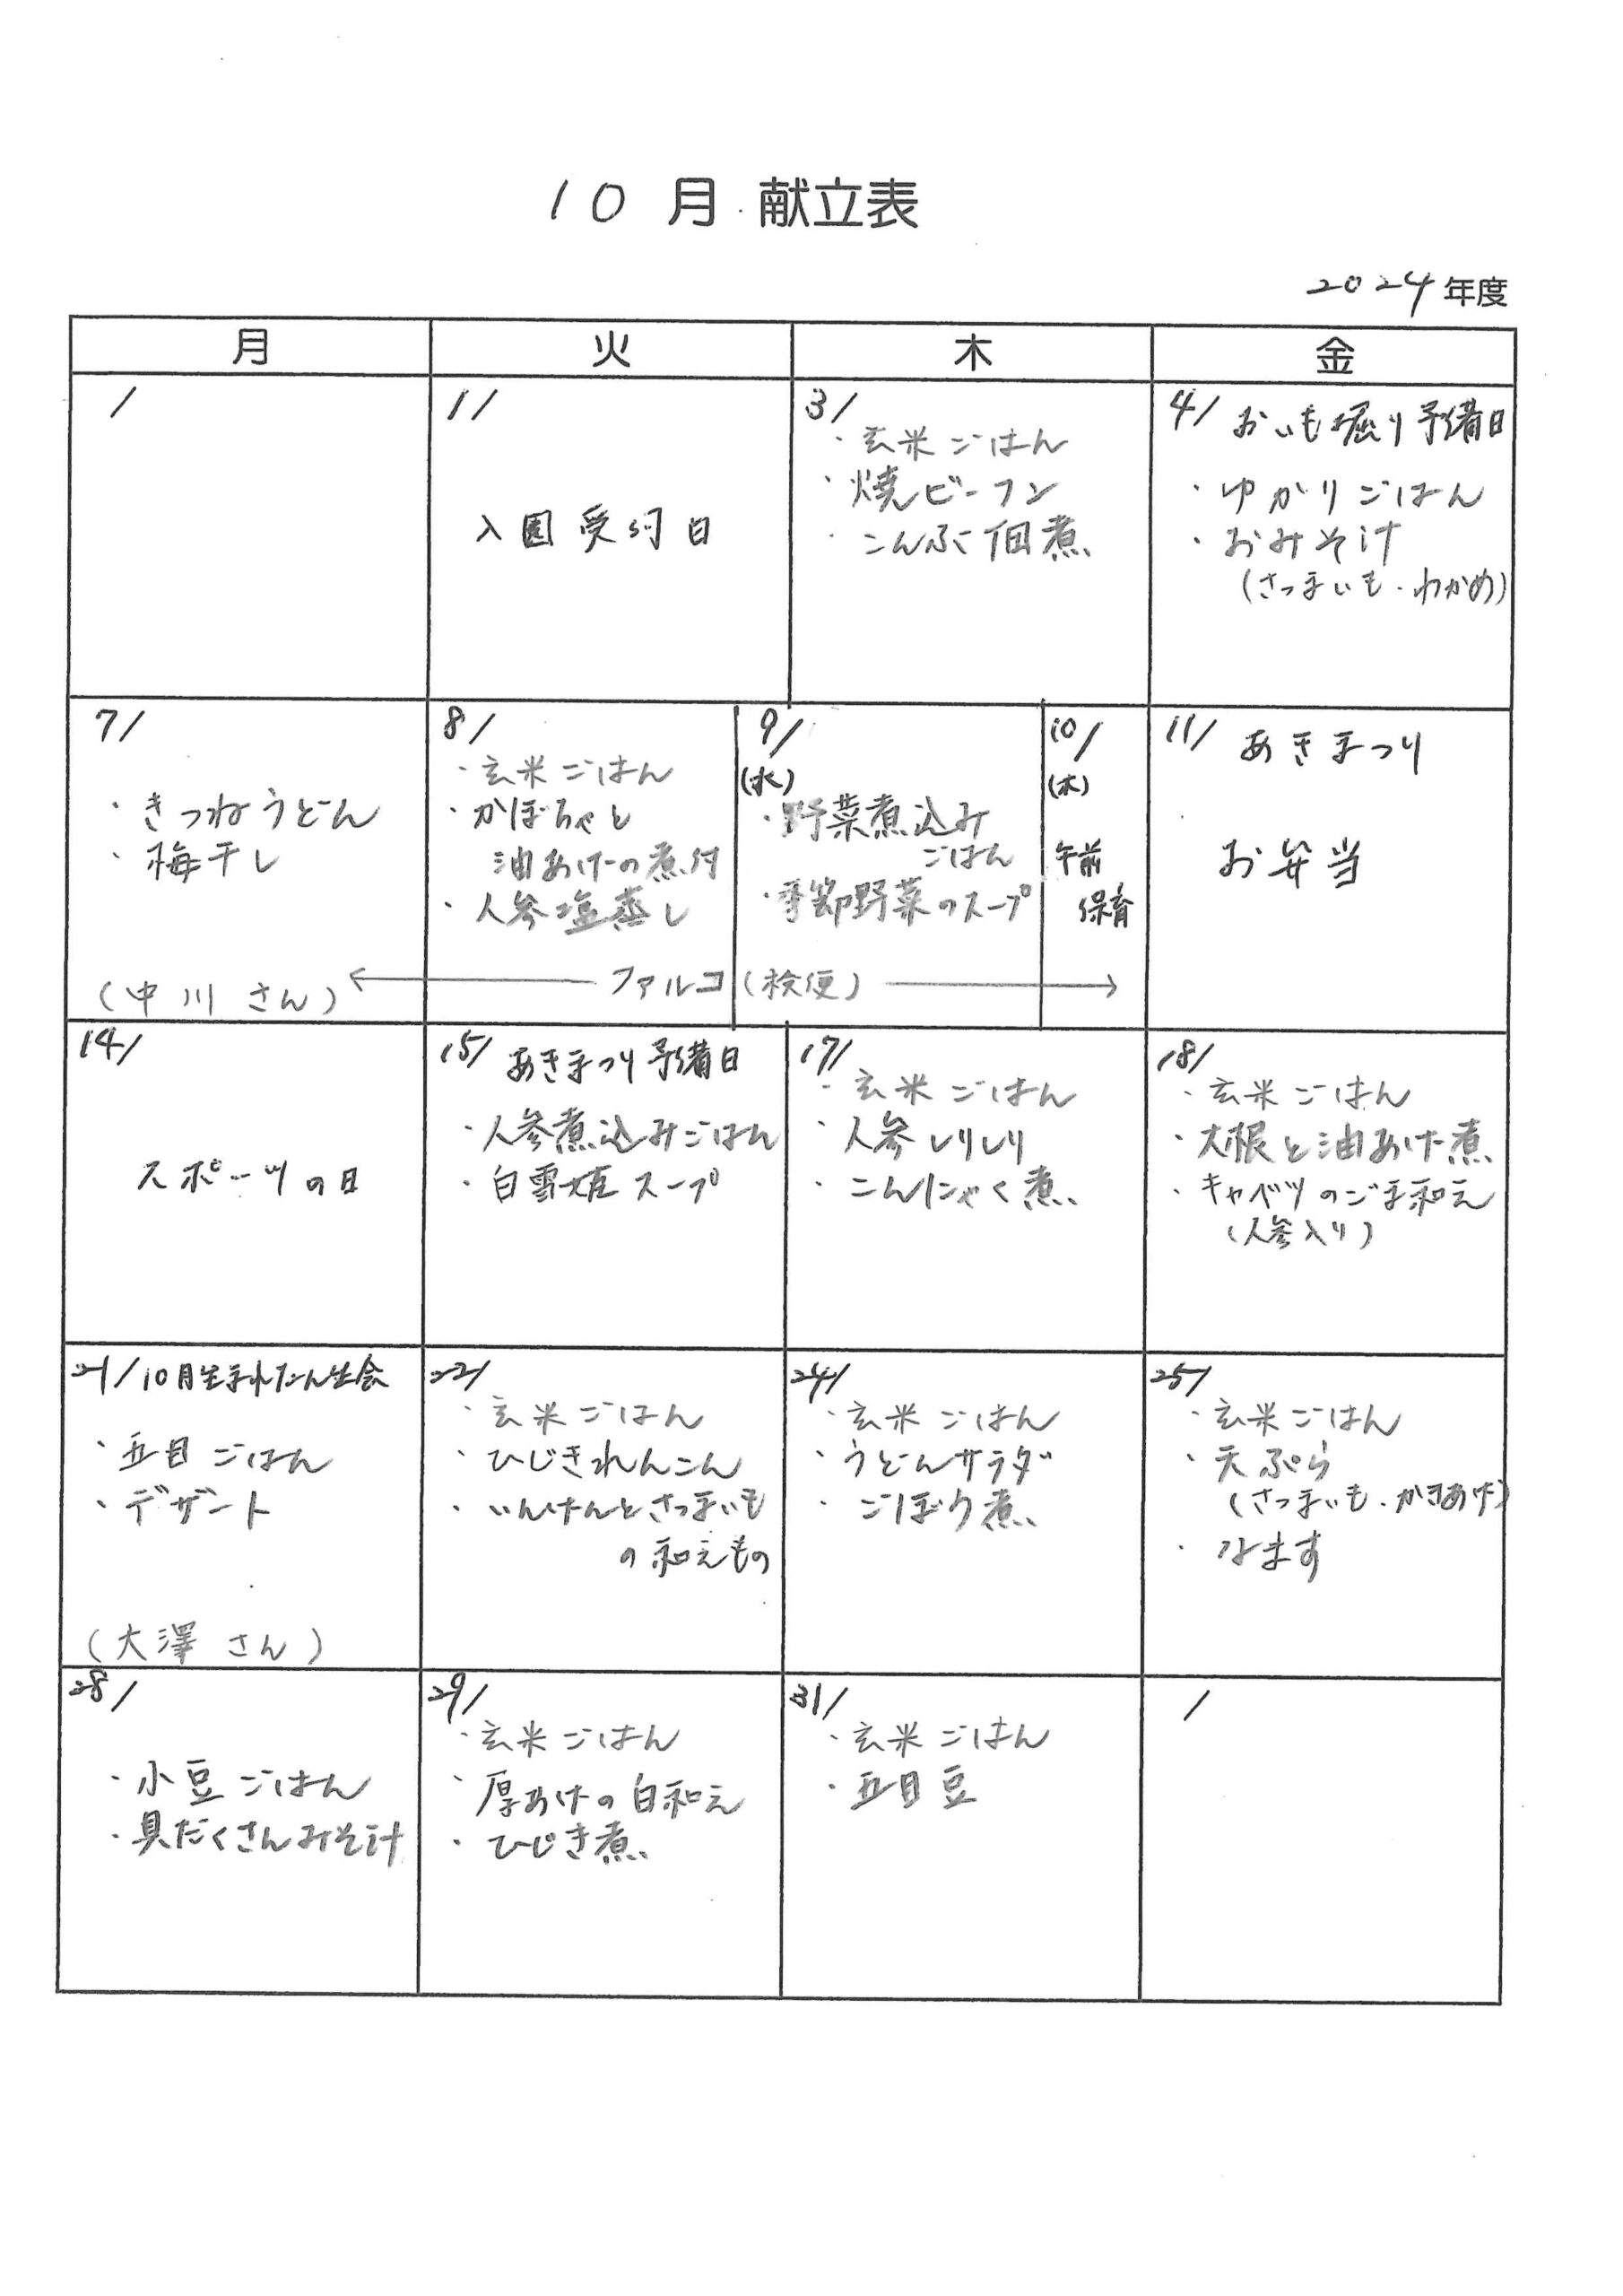 10月 献立表
2024年度
月 火 木 金
/
1/
入園受付日
3/
・玄米ごはん
・焼ビーフン
・こんぶ佃煮
4/ おいも堀り予備日
・ゆかりごはん
・おみそ汁
(さつまいも・わかめ)
7/
・きつねうどん
・梅干し
(中川さん)
8/
・玄米ごはん
・かぼちゃと
油あげの煮付
・人参塩蒸し
9/
(水)
・野菜煮込み
ごはん
・季節野菜のスープ
10/
(木)
午前
保育
← ファルコ(検便) →
11/ あきまつり
お弁当
14/
スポーツの日
15/ あきまつり予備日
・人参煮込みごはん
・白雪姫スープ
17/
・玄米ごはん
・人参しりしり
・こんにゃく煮
18/
・玄米ごはん
・大根と油あげ煮
・キャベツのごま和え
(人参入り)
21/ 10月生まれたん生会
・五目ごはん
・デザート
(大澤さん)
22/
・玄米ごはん
・ひじきれんこん
・いんげんとさつまいも
の和えもの
24/
・玄米ごはん
・うどんサラダ
・ごぼう煮
25/
・玄米ごはん
・天ぷら
(さつまいも・かきあげ)
・なます
28/
・小豆ごはん
・具だくさんみそ汁
29/
・玄米ごはん
・厚あげの白和え
・ひじき煮
31/
・玄米ごはん
・五目豆
/